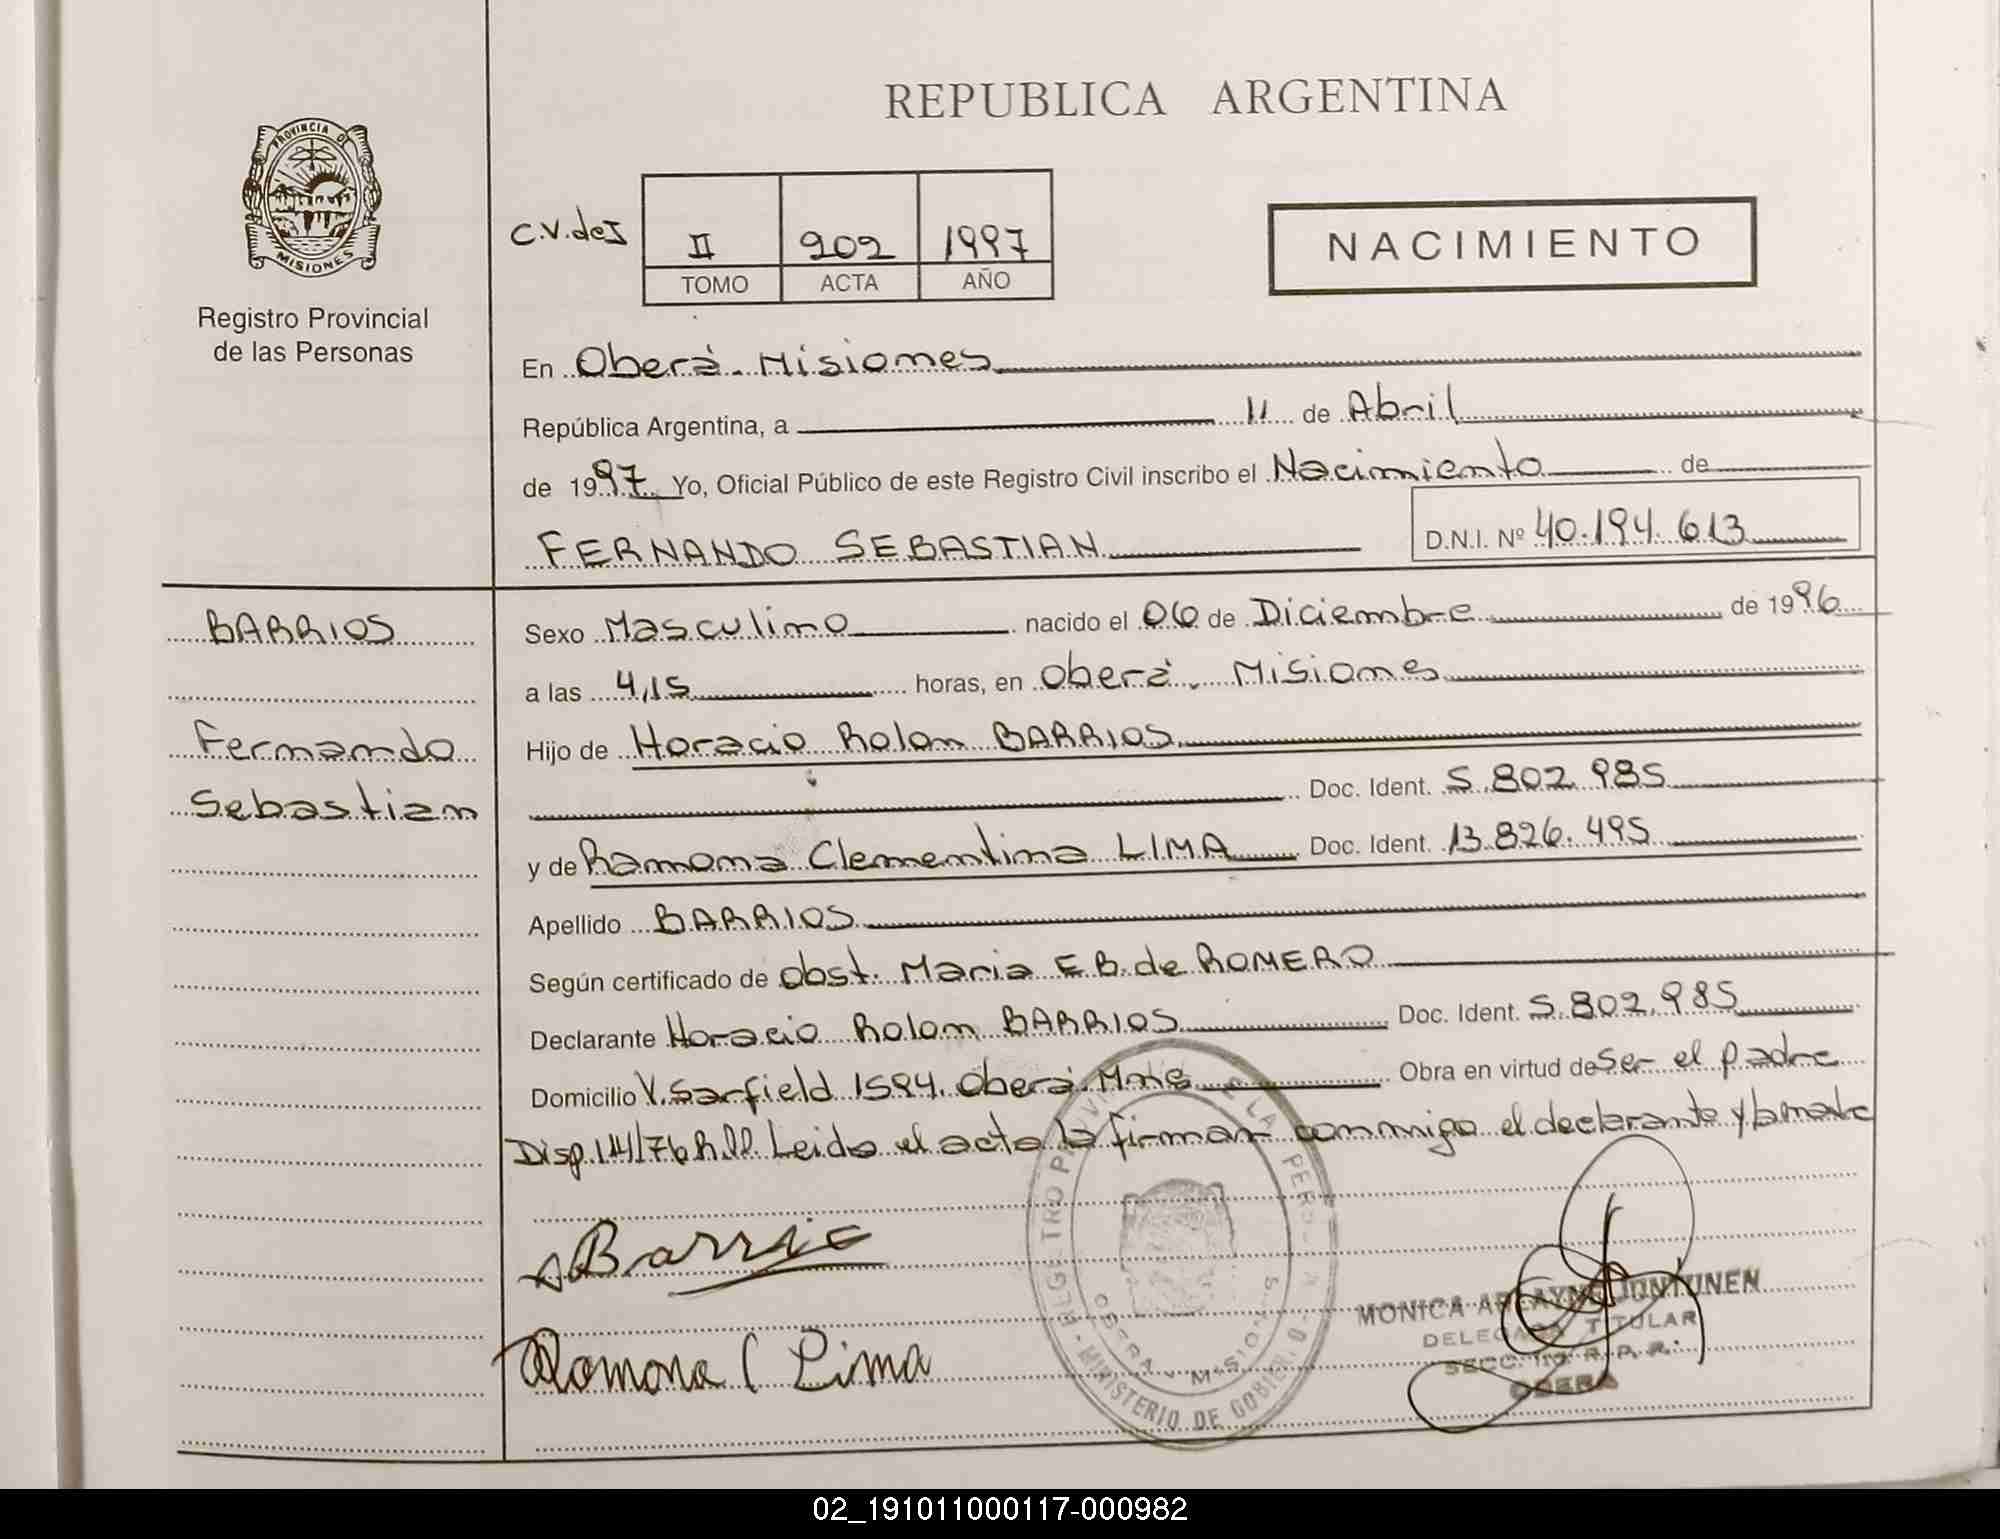 REPUBLICA ARGENTINA
PROVINCIA DE
MISIONES
Registro Provincial
de las Personas
C.V.deI
II 902 1997
TOMO ACTA AÑO
NACIMIENTO
En Oberá. Misiones
República Argentina, a 11 de Abril
de 1997 Yo, Oficial Público de este Registro Civil inscribo el Nacimiento de
FERNANDO SEBASTIAN D.N.I. Nº 40.194.613
BARRIOS
Fernando
Sebastian
Sexo Masculino nacido el 06 de Diciembre de 1996
a las 4,15 horas, en Oberá. Misiones
Hijo de Horacio Rolon BARRIOS
Doc. Ident. 5.802.985
y de Ramona Clementina LIMA Doc. Ident. 13.826.495
Apellido BARRIOS
Según certificado de Obst. Maria E B. de ROMERO
Declarante Horacio Rolon BARRIOS Doc. Ident. 5.802.985
Domicilio V. Sarfield 1594. Oberá. Mnes Obra en virtud de Ser el padre
Disp. 14/76 R.PP. Leida el acta la firman conmigo el declarante y la madre
Barrio
Ramona C Lima
MINISTERIO DE GOBIERNO
OBERA MISIONES
MONICA JONTUNEN
DELEGADA TITULAR
SECC. R. P. P.
OBERA
02_191011000117-000982